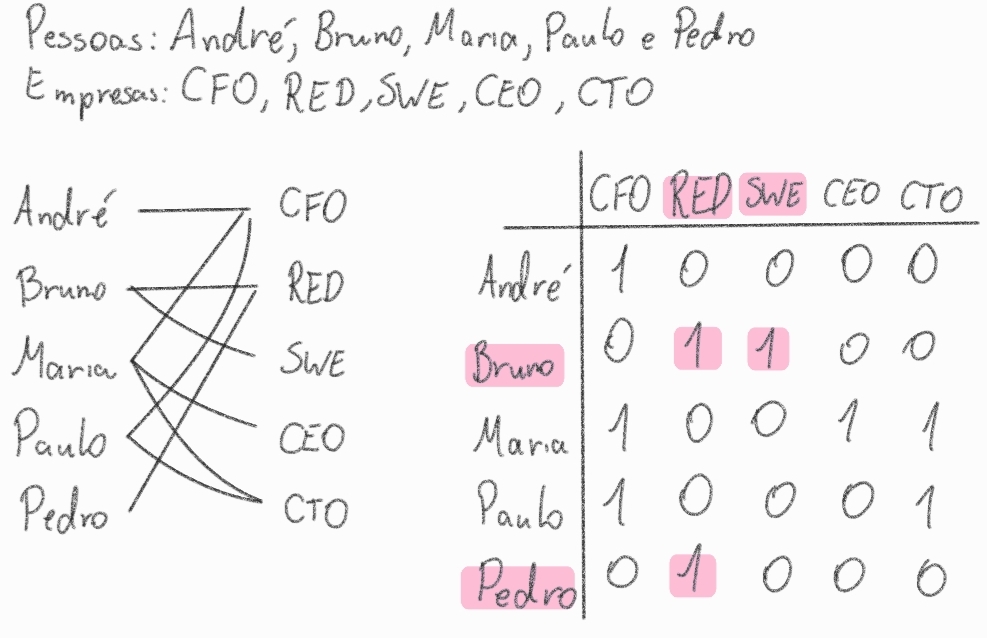 Pessoas: André, Bruno, Maria, Paulo e Pedro
Empresas: CFO, RED, SWE, CEO, CTO
André CFO
Bruno RED
Maria SWE
Paulo CEO
Pedro CTO
CFO RED SWE CEO CTO
André 1 0 0 0 0
Bruno 0 1 1 0 0
Maria 1 0 0 1 1
Paulo 1 0 0 0 1
Pedro 0 1 0 0 0